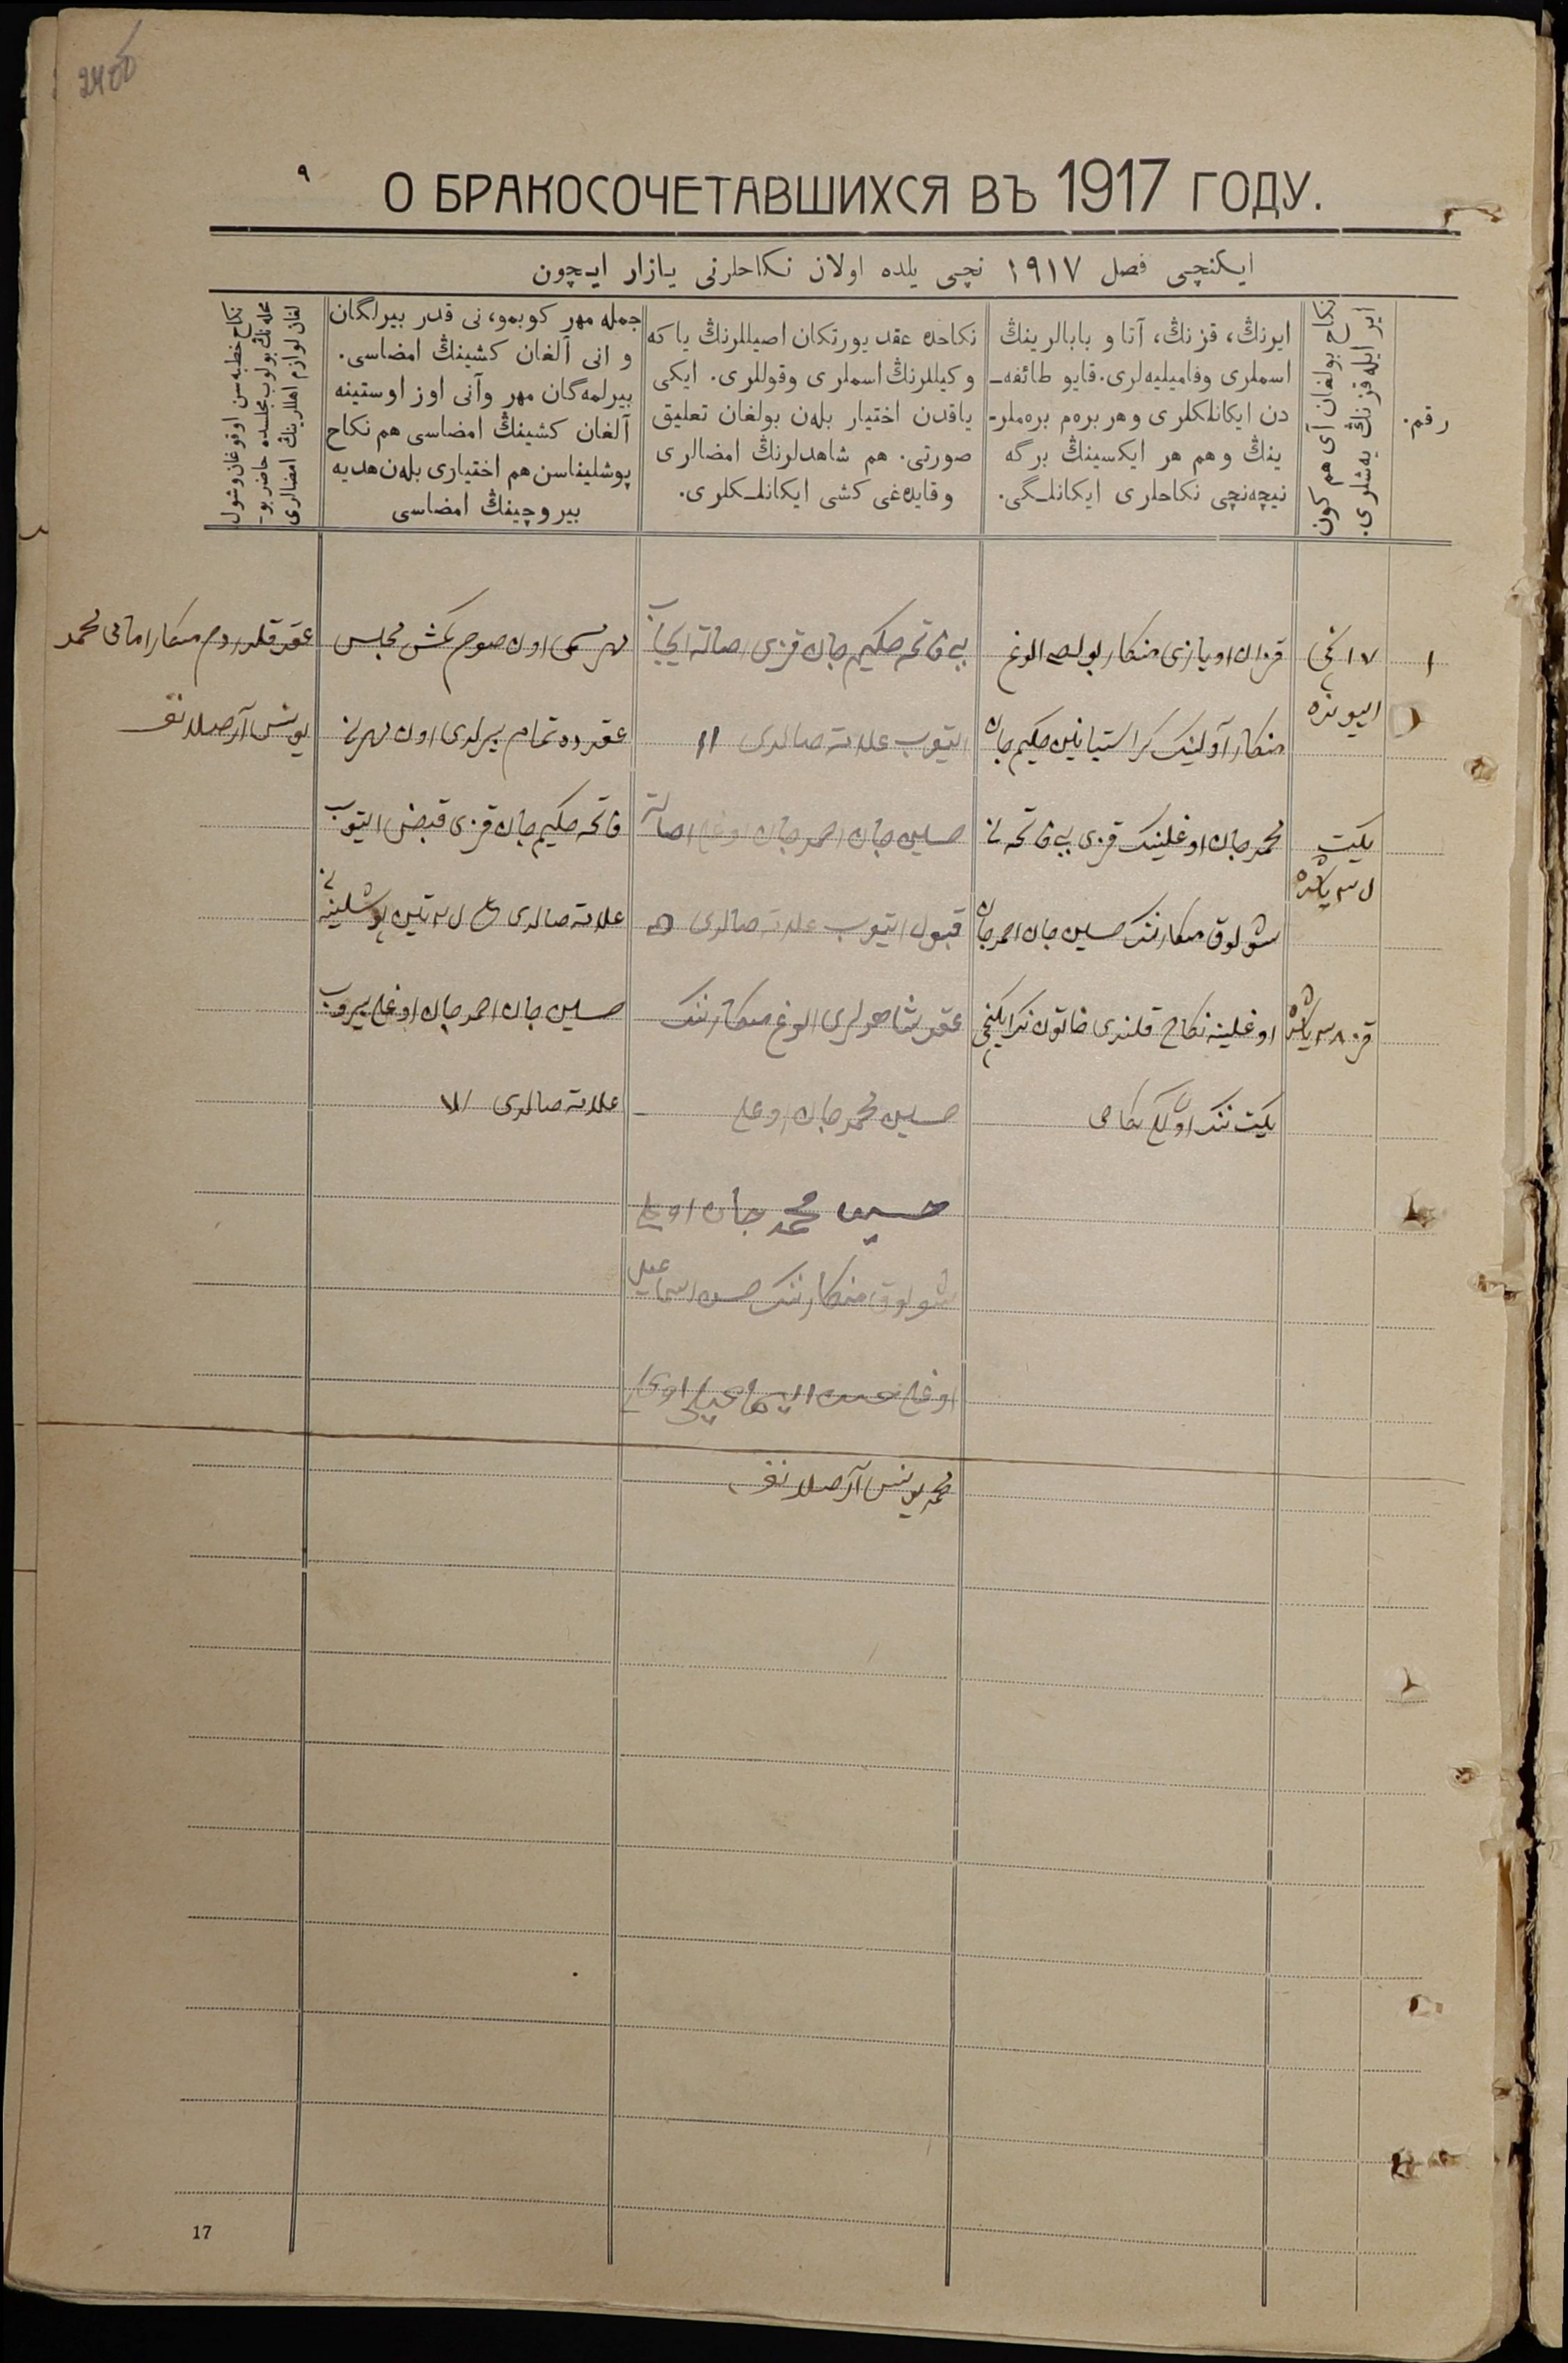 О БРАКОСОЧЕТАВШИХСЯ ВЪ 1917 ГОДУ.
٩
ایکنچی فصل ١٩١٧ نچی یلده اولان نکاحلرنی یازار ایچون
رقم.
نکاح بولغان آی هم کون
ایر ایله قزنڭ یه‌شلری.
ایرنڭ، قزنڭ، آتا و بابالرینڭ
اسملری وفامیلیه‌لری. قایو طائفه‌ـ
دن ایکانلکلری وهر بره‌م بره‌ملرـ
ینڭ وهم هر ایکسینڭ برگه
نیچه‌نچی نکاحلری ایکانلـگی.
نکاحده عقد یورتکان اصیللرنڭ یا که
وکیللرنڭ اسملری وقوللری. ایکی
یاقدن اختیار بله‌ن بولغان تعلیق
صورتی. هم شاهدلرنڭ امضالری
وقایده‌غی کشی ایکانلـکلری.
جمله مهر کوبمو، نی قدر بیرلگان
و انی آلغان کشینڭ امضاسی.
بیرلمه‌گان مهر وآنی اوز اوستینه
آلغان کشینڭ امضاسی هم نکاح
پوشلیناسن هم اختیاری بله‌ن هدیه
بیروچینڭ امضاسی
نکاح خطبه‌سن اوقوغان وشول
محله‌نڭ بولوب مجلسده حاضر بوـ
لغان لوازم اهللرینڭ امضالری
١
١٧ نچی
اییونده
یکیت
یاشده
قز ٣٨ یاشده
قزان اویازی منکار
منکار آولینک کراستیانین حکیم جان
محمدجان اوغلینک قزی بی فاتحه نی
شولوق منکارننک حسین جان احمدجان
اوغلینه نکاح قلندی خاتون نک ایکنچی
یکیت ننک اولگی نکاحی
بی فاتحه حکیم جان قزی اصالة ایجاب
ایتوب علامة صالدی
حسین جان احمدجان اوغلی اصالة
قبول ایتوب علامة صالدی
عقد شاهدلری الوغ منکارننک
حسین محمدجان اوغلی
حسین محمد جان اوغلی
شولوق منکارننک حسن اسماعیل
اوغلی حسن اسماعیل اوغلی
محمد یونس آرصلانف
مهر مسمی اون صوم کمش مجلس
عقدده تمام بیرلدی اول مهرنی
فاتحه حکیم جان قزی قبض ایتوب
علامة صالدی
حسین جان احمدجان اوغلی بیروب
علامة صالدی
عقد قلدردم منکار امامی محمد
یونس آرصلانف
17